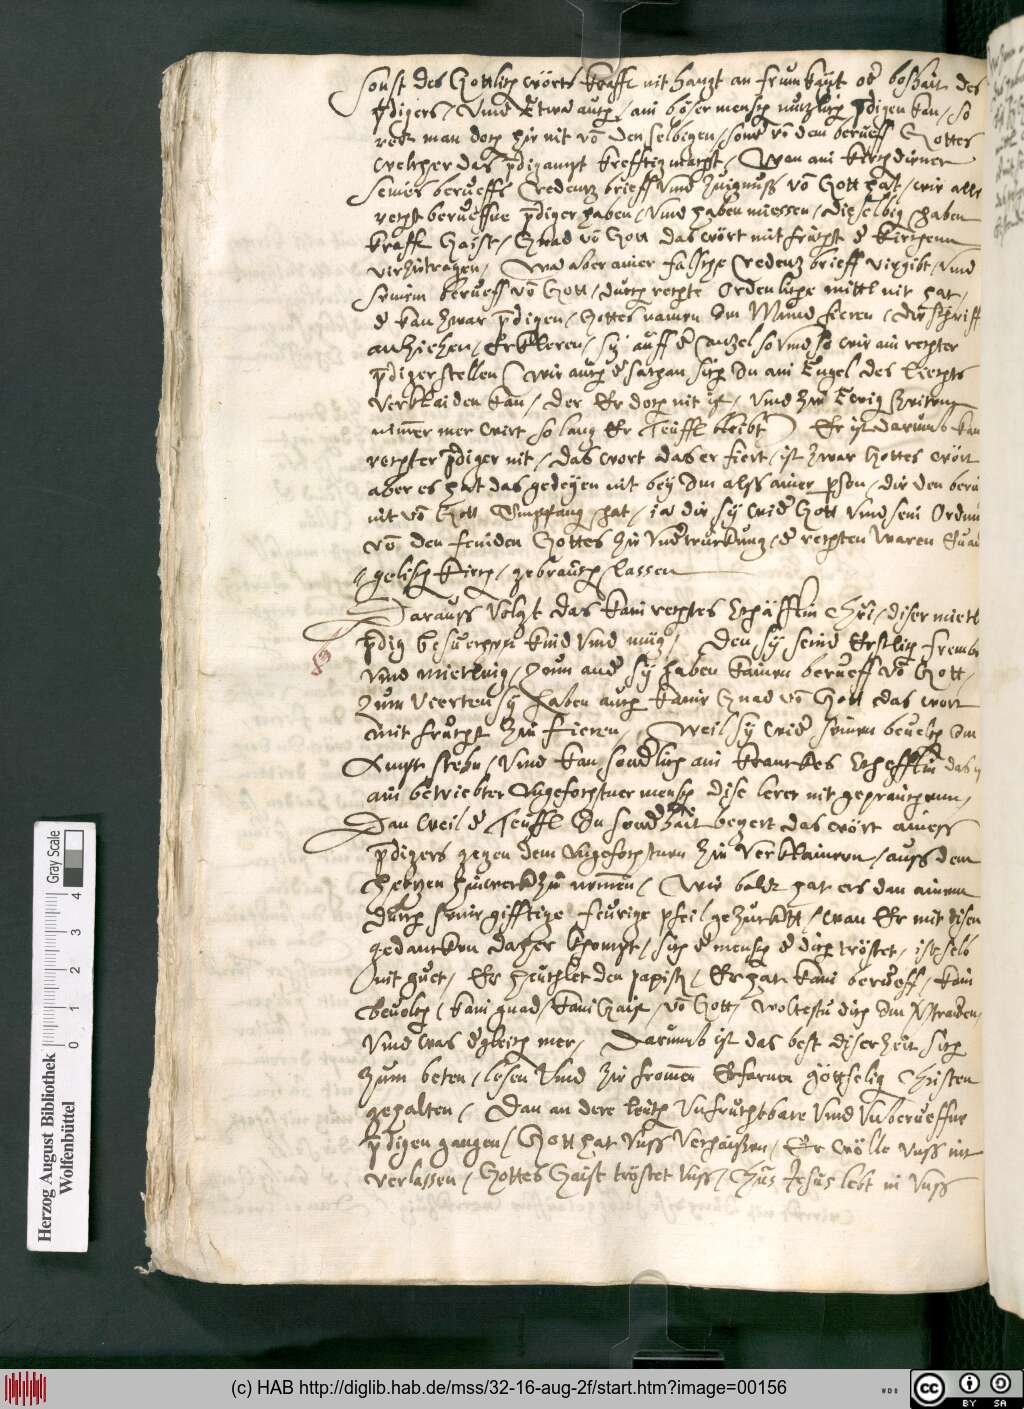 sonst des Göttlich wörts krafft nit hangt an frumkayt od boshait des
pdigers / Vnnd Etwa auch / ain böser mensch nuzlich pdigen kan / so
redt man doch hir nit vō den selbigen / sond vō dem berueff Gottes
welcher das pdigampt krefftig macht / Wan ain kirchdiener
seines berueffs Credentz brieff vnnd zeugnuss vō Gott hat / wir alle
recht berueffne pdiger haben / vnnd haben miessen / die selbig haben
krafft Gaist / Gnad vō Gott das wört mit frücht d kirchenn
virzutragen / Wa aber ainer falsche Credenz brieff virgibt / vnd
seinem berueff vō Gott / durch rechte Ordenliche mittl nit hat /
d kan zwar pdigen / Gottes namen Im Mund fieren / die schrifft
anziehen / Erkleren / sich auff d Canzel so vnd so wie ain rechter
pdiger stellen / wie auch d sathan sich In ain Engel des Liechts
verklaiden kan / der Er doch nit ist / vnnd zu Ewig zeitenn
nimer mer wirt so lang Er Teuffl bleibt / Er ist darumb kain
rechter pdiger nit / das wort das er fiert / ist zwar Gottes wort
aber es hat das gedeyen nit bey Im alss ainer pson / die den beru
nit vō Gott Empfang hat / ja die sy wid Gott vnd sein Ordnu
vō den feinden Gottes zu vndtruckung / d rechten waren Euan
gelisch kirch / gebrauch lassen
Daraus volgt das kain rechtes schäfflin Chri / diser mietl
pdig besuechen kind vnnd mug / Den sy seind Erstlich frembd
vnnd mietling / zum and sy haben kainen berueff vō Gott /
zum vierten sy haben auch kaine Gnad vō Gott das wort
mit frücht zu fieren / Weil sy wid seinen beuelch Im
Ampt stehn / Vnnd kan sondlich ain kranckes schefflin das ist
ain betriebter Angefochtner mensch dise lerer nit geprauchenn /
Dan weil d Teuffl In sondhait begert das wört ainess
pdigers gegen dem Angefochtnen zu verklainern / auss dem
hertzen hinweckh zu nemen / Wie baldt hat ers dan ainem
durch seine gifftige feurige pfeil gezuckhtt / wan Er mit disen
gedancken daher kompt / sich d mensch d dich tröstet / ist selb
nit guet / Er heuchlet den papisten / Er hat kain berueff / kain
beuelch / kain gnad / kain Gaist / vō Gott / woltestu dich Im vertrawen /
vnnd was dgleich mer / Darumb ist das best diser zeit sich
zum beten / lesen vnnd zu fromen Erfarnen göttselig Christen
gehalten / Dan an dere leuth vnfruchtbare vnnd vnberueffne
pdigen gangen / Gott hat vnss verhaissen / Er wölle vnss nit
verlassen / Gottes Gaist tröstet vnss / Chus Jesus lebt in vnss
Herzog August Bibliothek
Wolfenbüttel
0 1 2 3 4
Gray Scale
(c) HAB http://diglib.hab.de/mss/32-16-aug-2f/start.htm?image=00156
WDB
CC BY SA